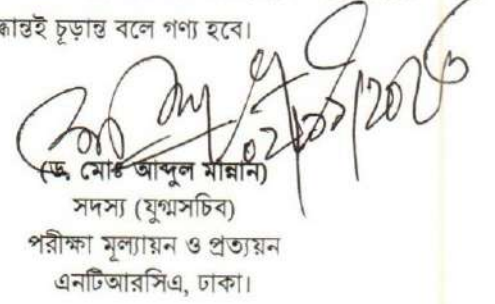 দ্ধান্তই চূড়ান্ত বলে গণ্য হবে।
(ড. মোঃ আব্দুল মান্নান)
সদস্য (যুগ্মসচিব)
পরীক্ষা মূল্যায়ন ও প্রত্যয়ন
এনটিআরসিএ, ঢাকা।